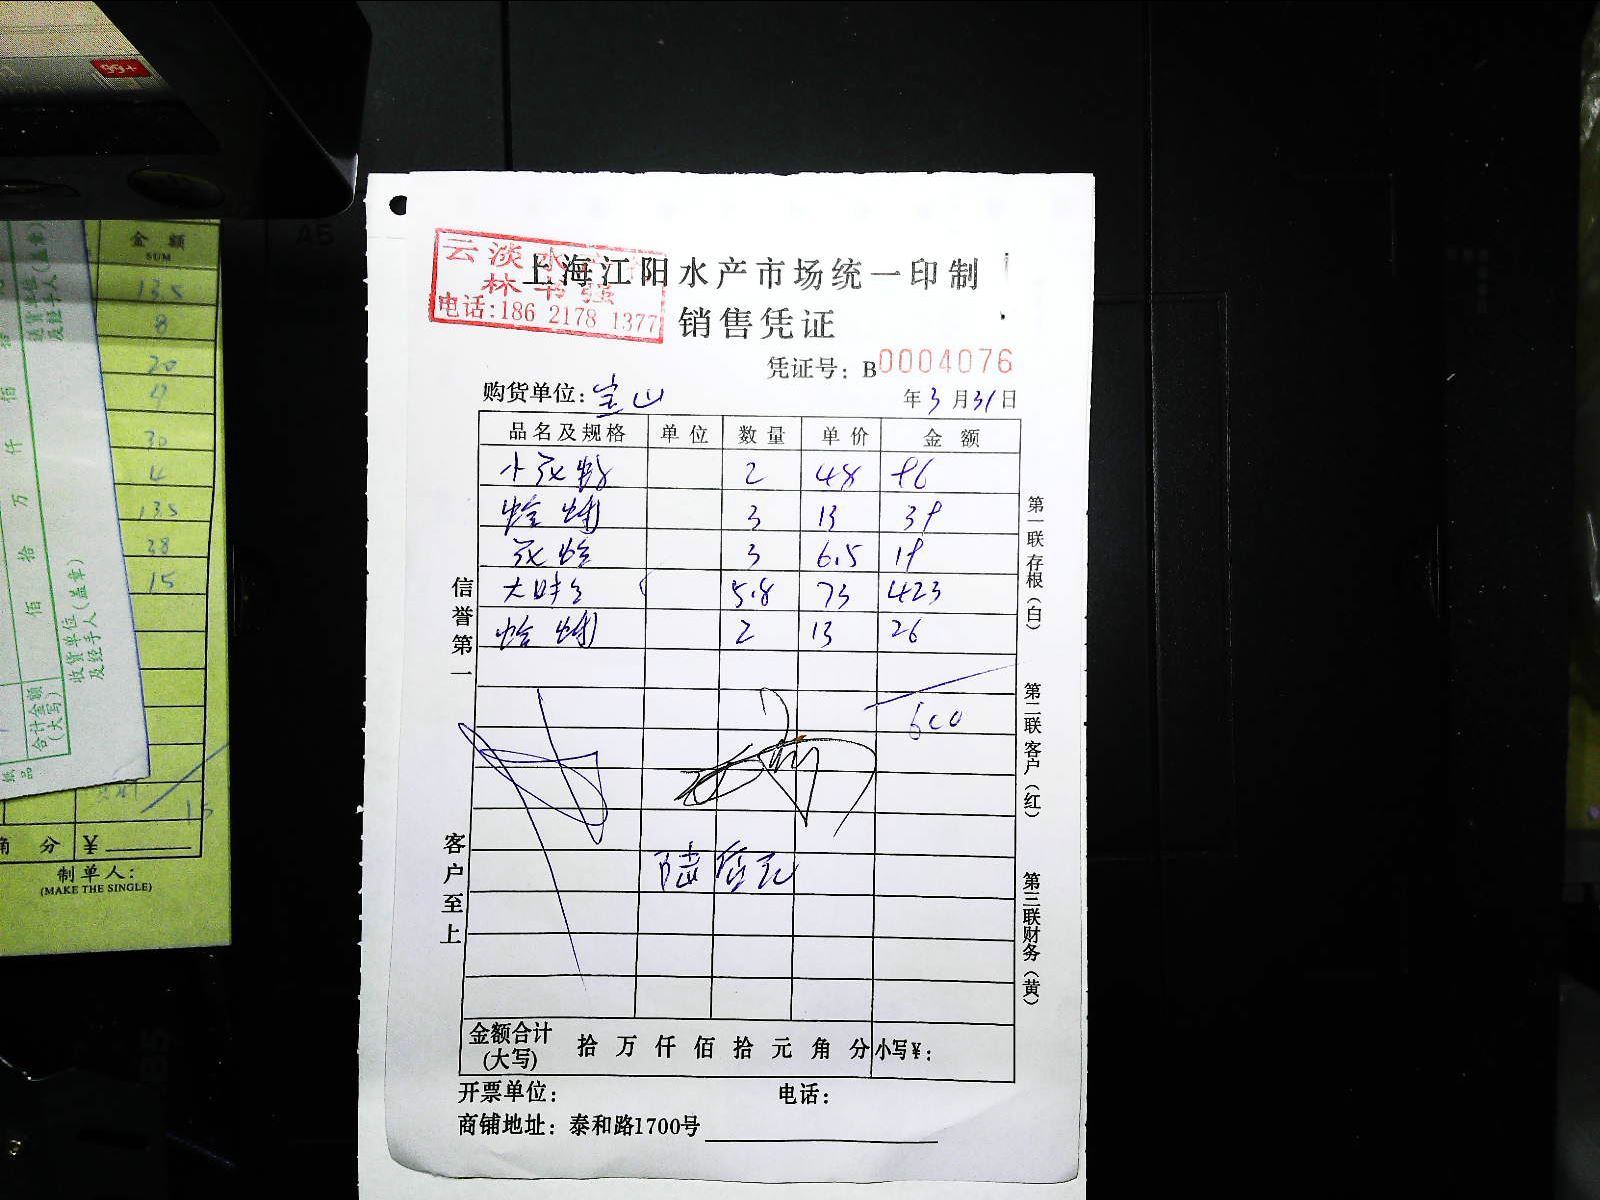 99+
金 额
SUM
135
8
20
9
30
4
135
38
15
合计金额
(大写)
佰 拾 万 仟 佰
收货单位(盖章)
及经手人
送货单位(盖章)
及经手人
角 分 ¥
制单人:
(MAKE THE SINGLE)
云淡水产
林书强
电话:186 2178 1377
上海江阳水产市场统一印制
销售凭证
凭证号: B0004076
购货单位: 宝山 年3月31日
品名及规格 单位 数量 单价 金额
2 48 96
3 13 39
3 6.5 19
大 5.8 73 423
2 13 26
600
陆佰元
金额合计
(大写) 拾 万 仟 佰 拾 元 角 分 小写¥:
开票单位: 电话:
商铺地址: 泰和路1700号
信誉第一
客户至上
第一联存根(白)
第二联客户(红)
第三联财务(黄)